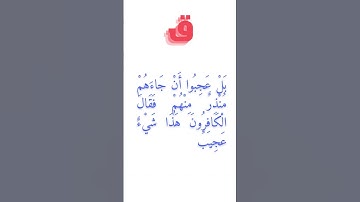 ق
بَلْ عَجِبُوا أَنْ جَاءَهُمْ
مُنْذِرٌ مِنْهُمْ فَقَالَ
الْكَافِرُونَ هَٰذَا شَيْءٌ
عَجِيبٌ